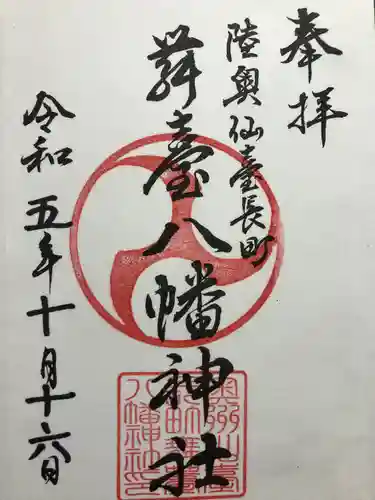 奉拝
陸奥仙臺長町
舞臺八幡神社
令和五年十月十六日